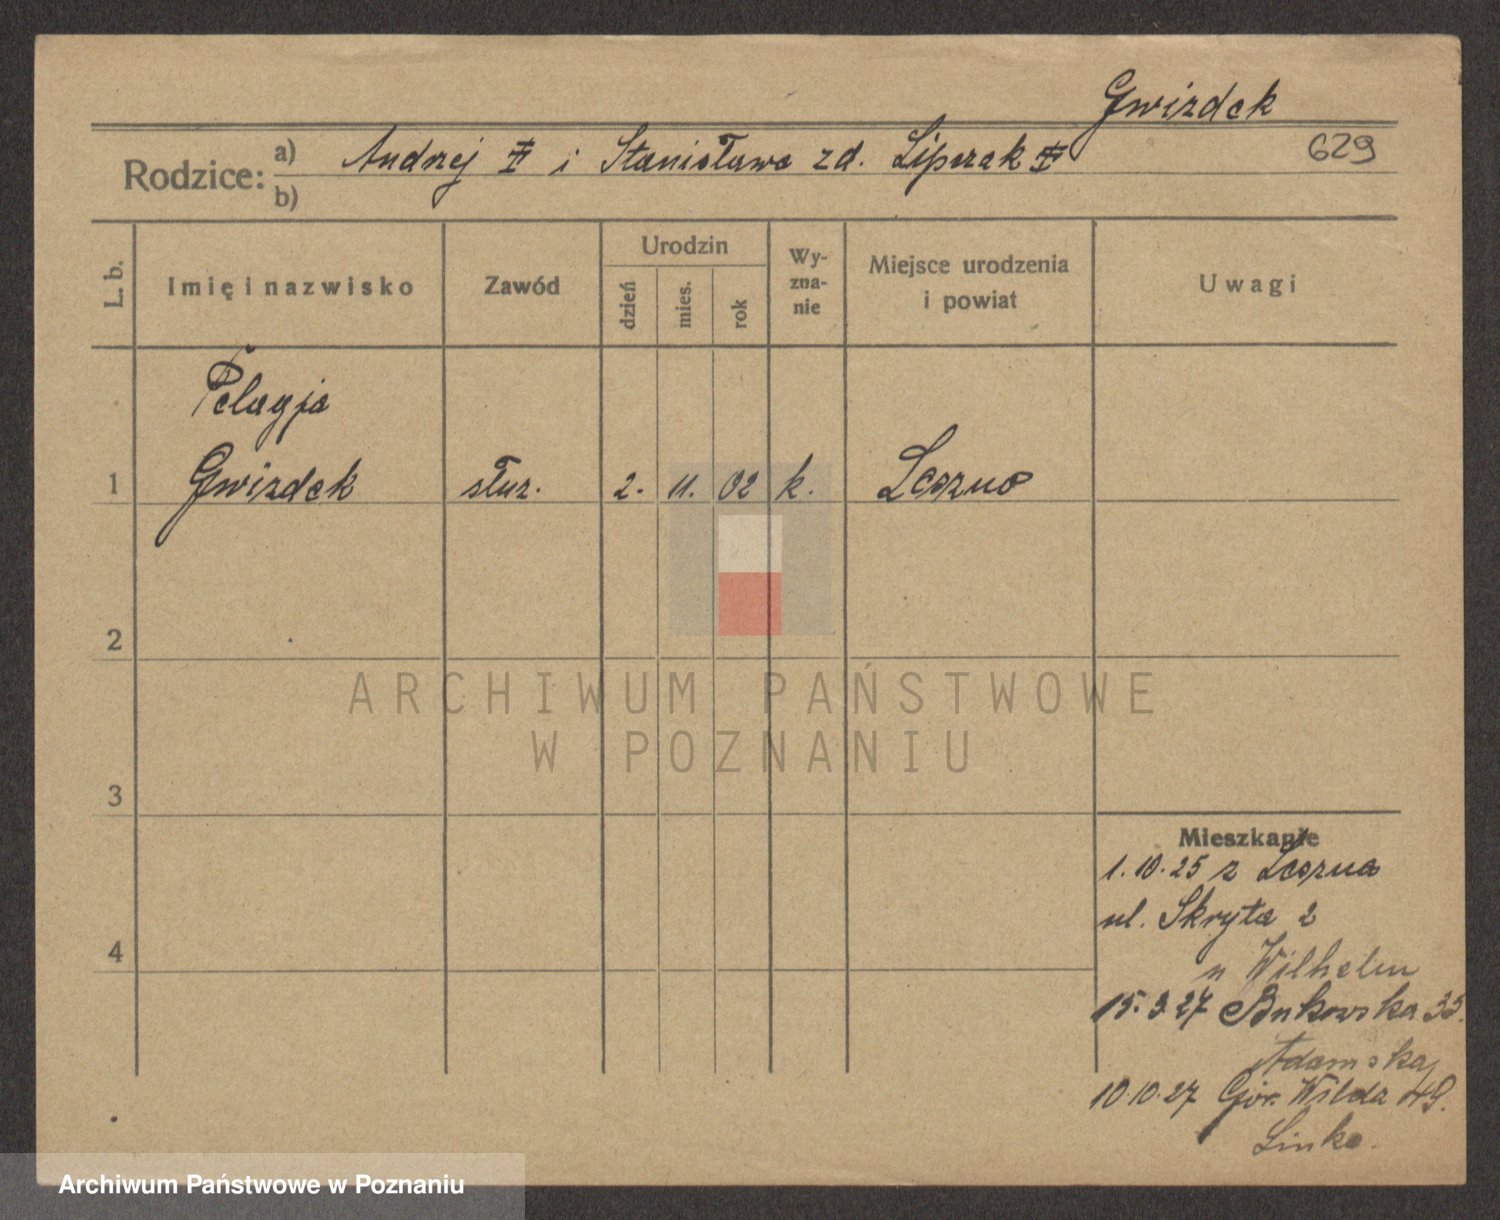 Gwizdek
629
Rodzice: a) Andrzej i Stanisława zd. Lipczak
b)
L. b.
Imię i nazwisko
Zawód
Urodzin
dzień
mies.
rok
Wy-
zna-
nie
Miejsce urodzenia
i powiat
Uwagi
Pelagja
1 Gwizdek służ. 2. 11. 02 k. Leszno
2
ARCHIWUM PAŃSTWOWE
W POZNANIU
3
Mieszkanie
1.10.25 z Leszna
ul. Skryta 2
4
u Wilhelm
15.3.27 Bukowska 35.
Adamska
10.10.27 Gór. Wilda 49.
Linke.
Archiwum Państwowe w Poznaniu